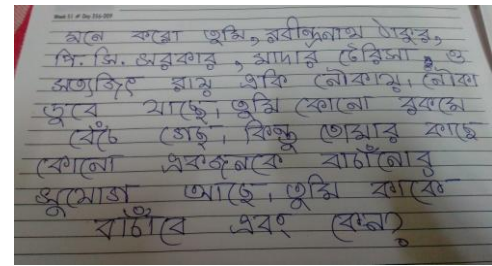 মনে করো তুমি, রবীন্দ্রনাথ ঠাকুর,
পি. সি. সরকার, মাদার টেরিসা, ও
সত্যজিৎ রায় একি নৌকায়, নৌকা
ডুবে যাচ্ছে, তুমি কোনো রকমে
বেঁচে গেছ, কিন্তু তোমার কাছে
কোনো একজনকে বাচাঁনোর
সুযোগ আছে, তুমি কাকে
বাচাঁবে এবং কেন?